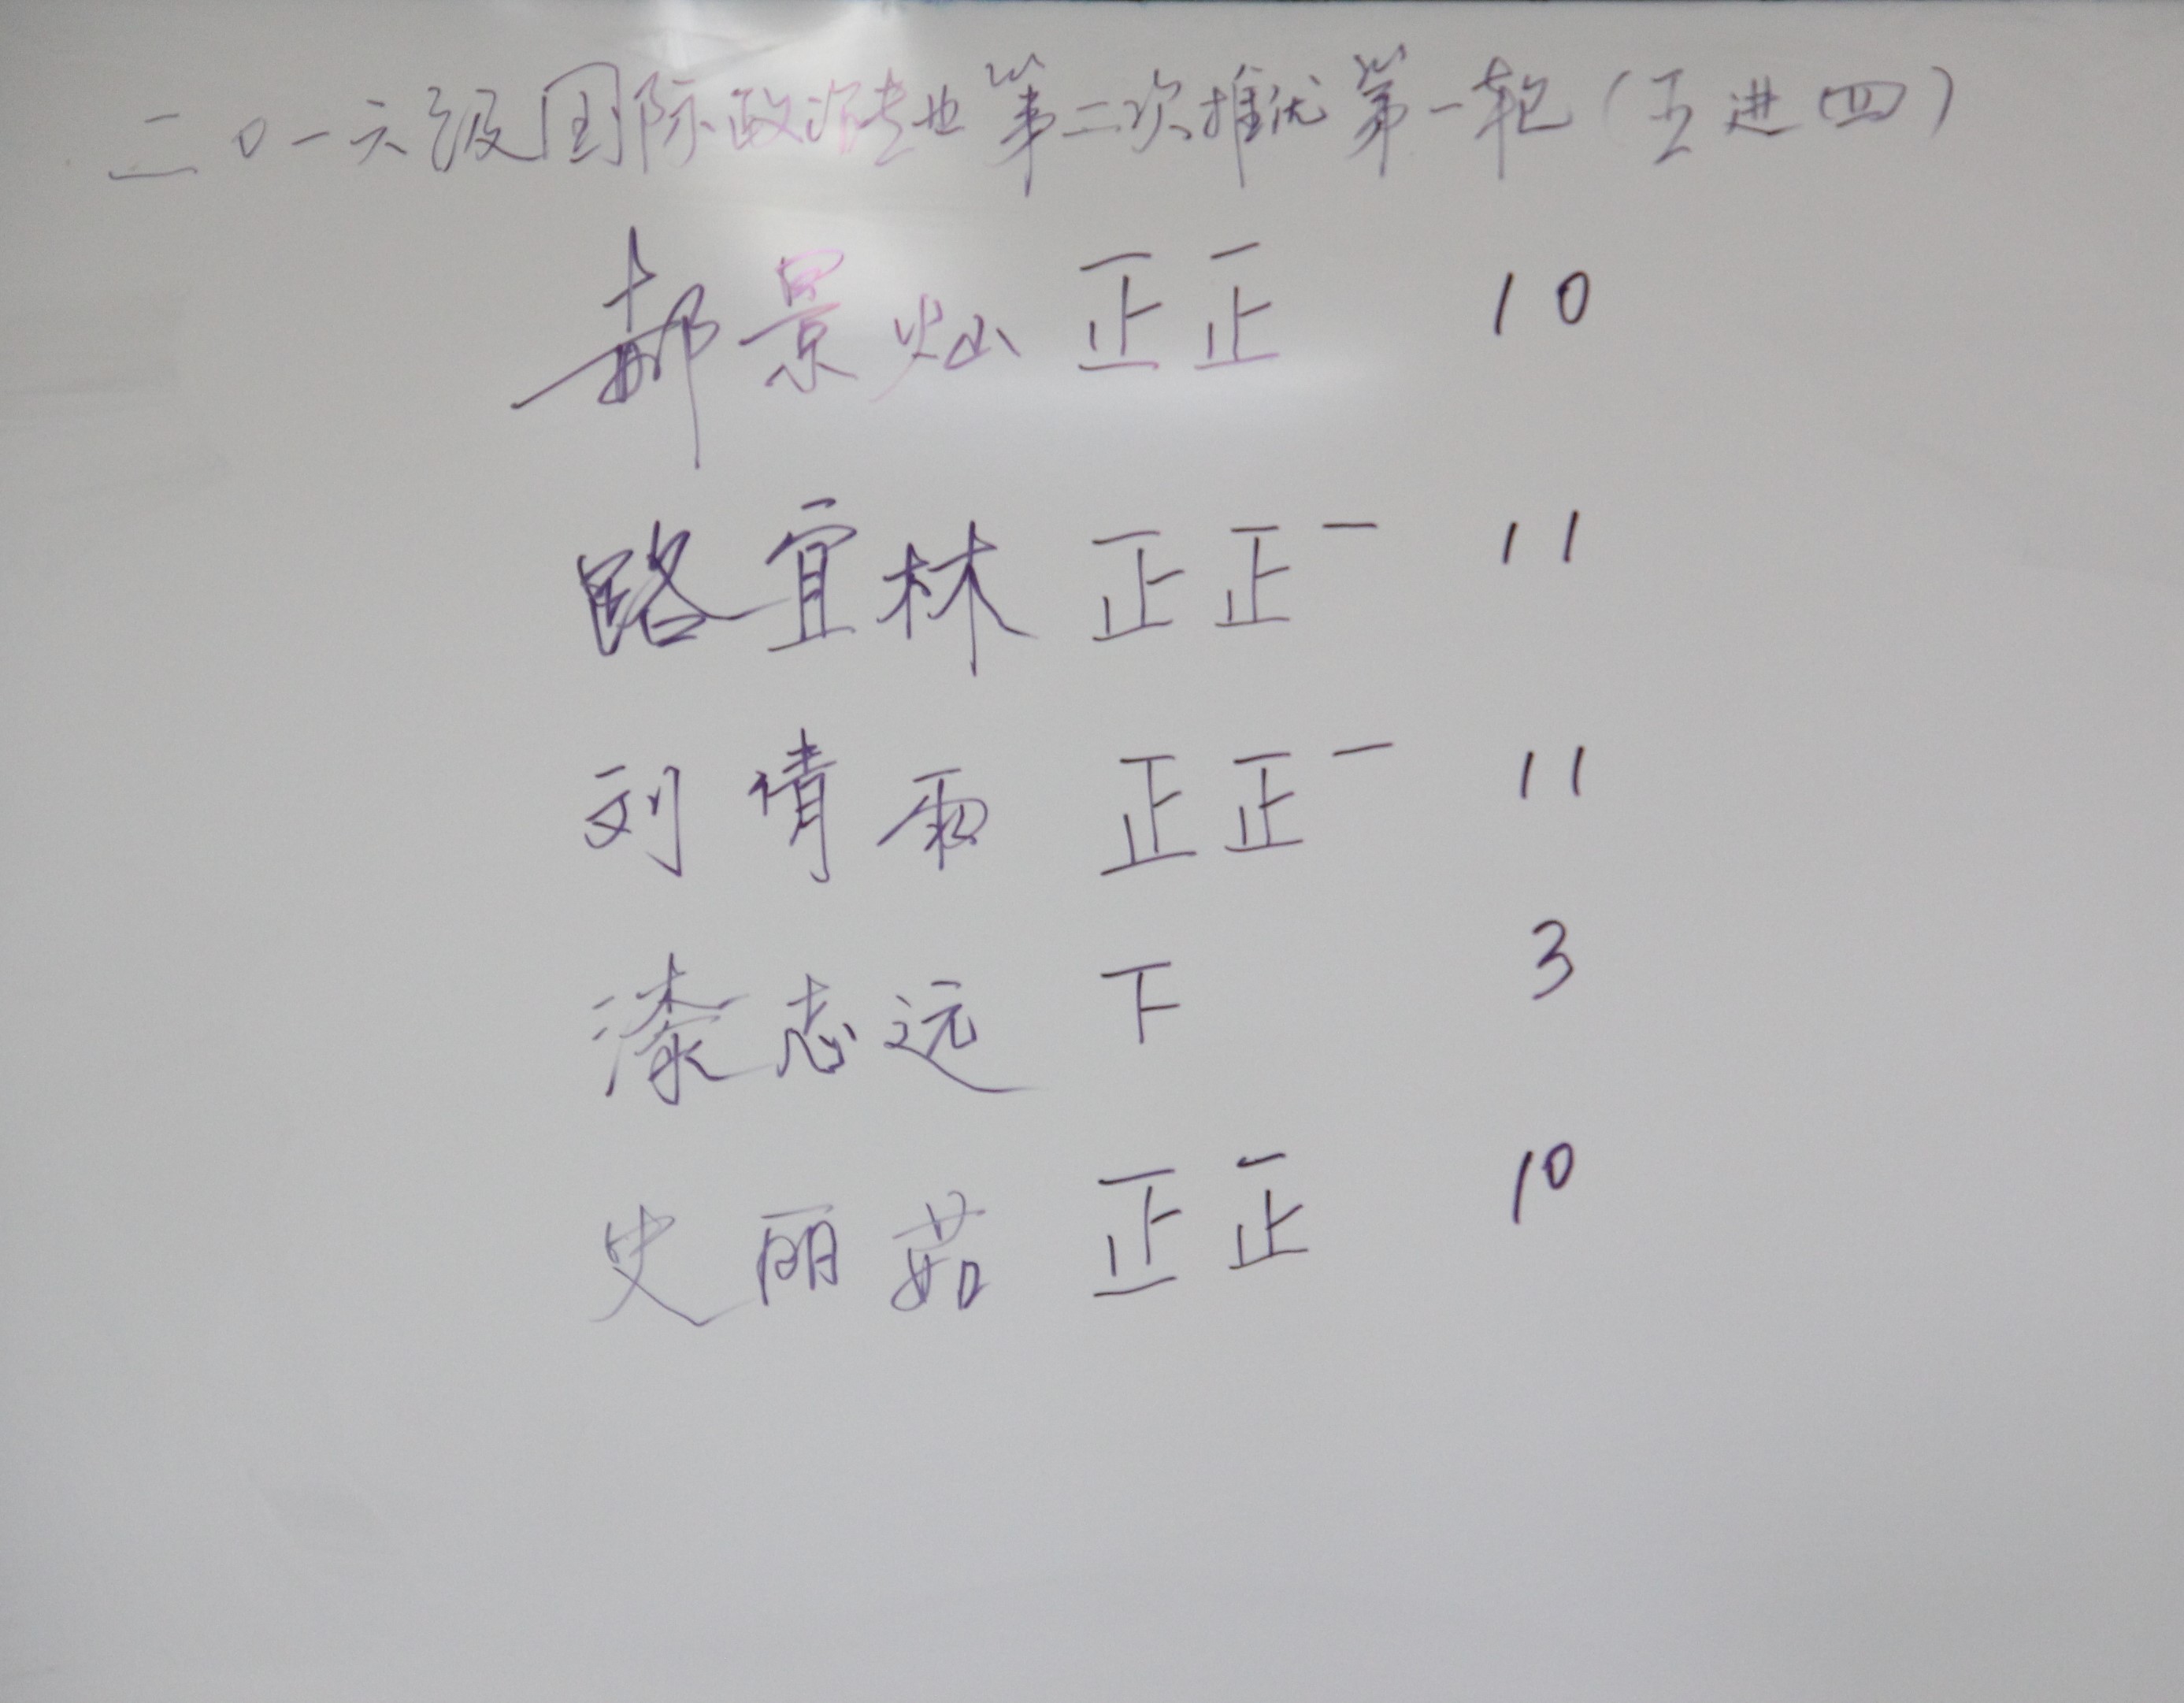 二0一六级国际政治专业第二次推优第一轮（五进四）
郝景灿 正正 10
路宜林 正正一 11
刘倩雨 正正一 11
漆志远 下 3
史丽茹 正正 10